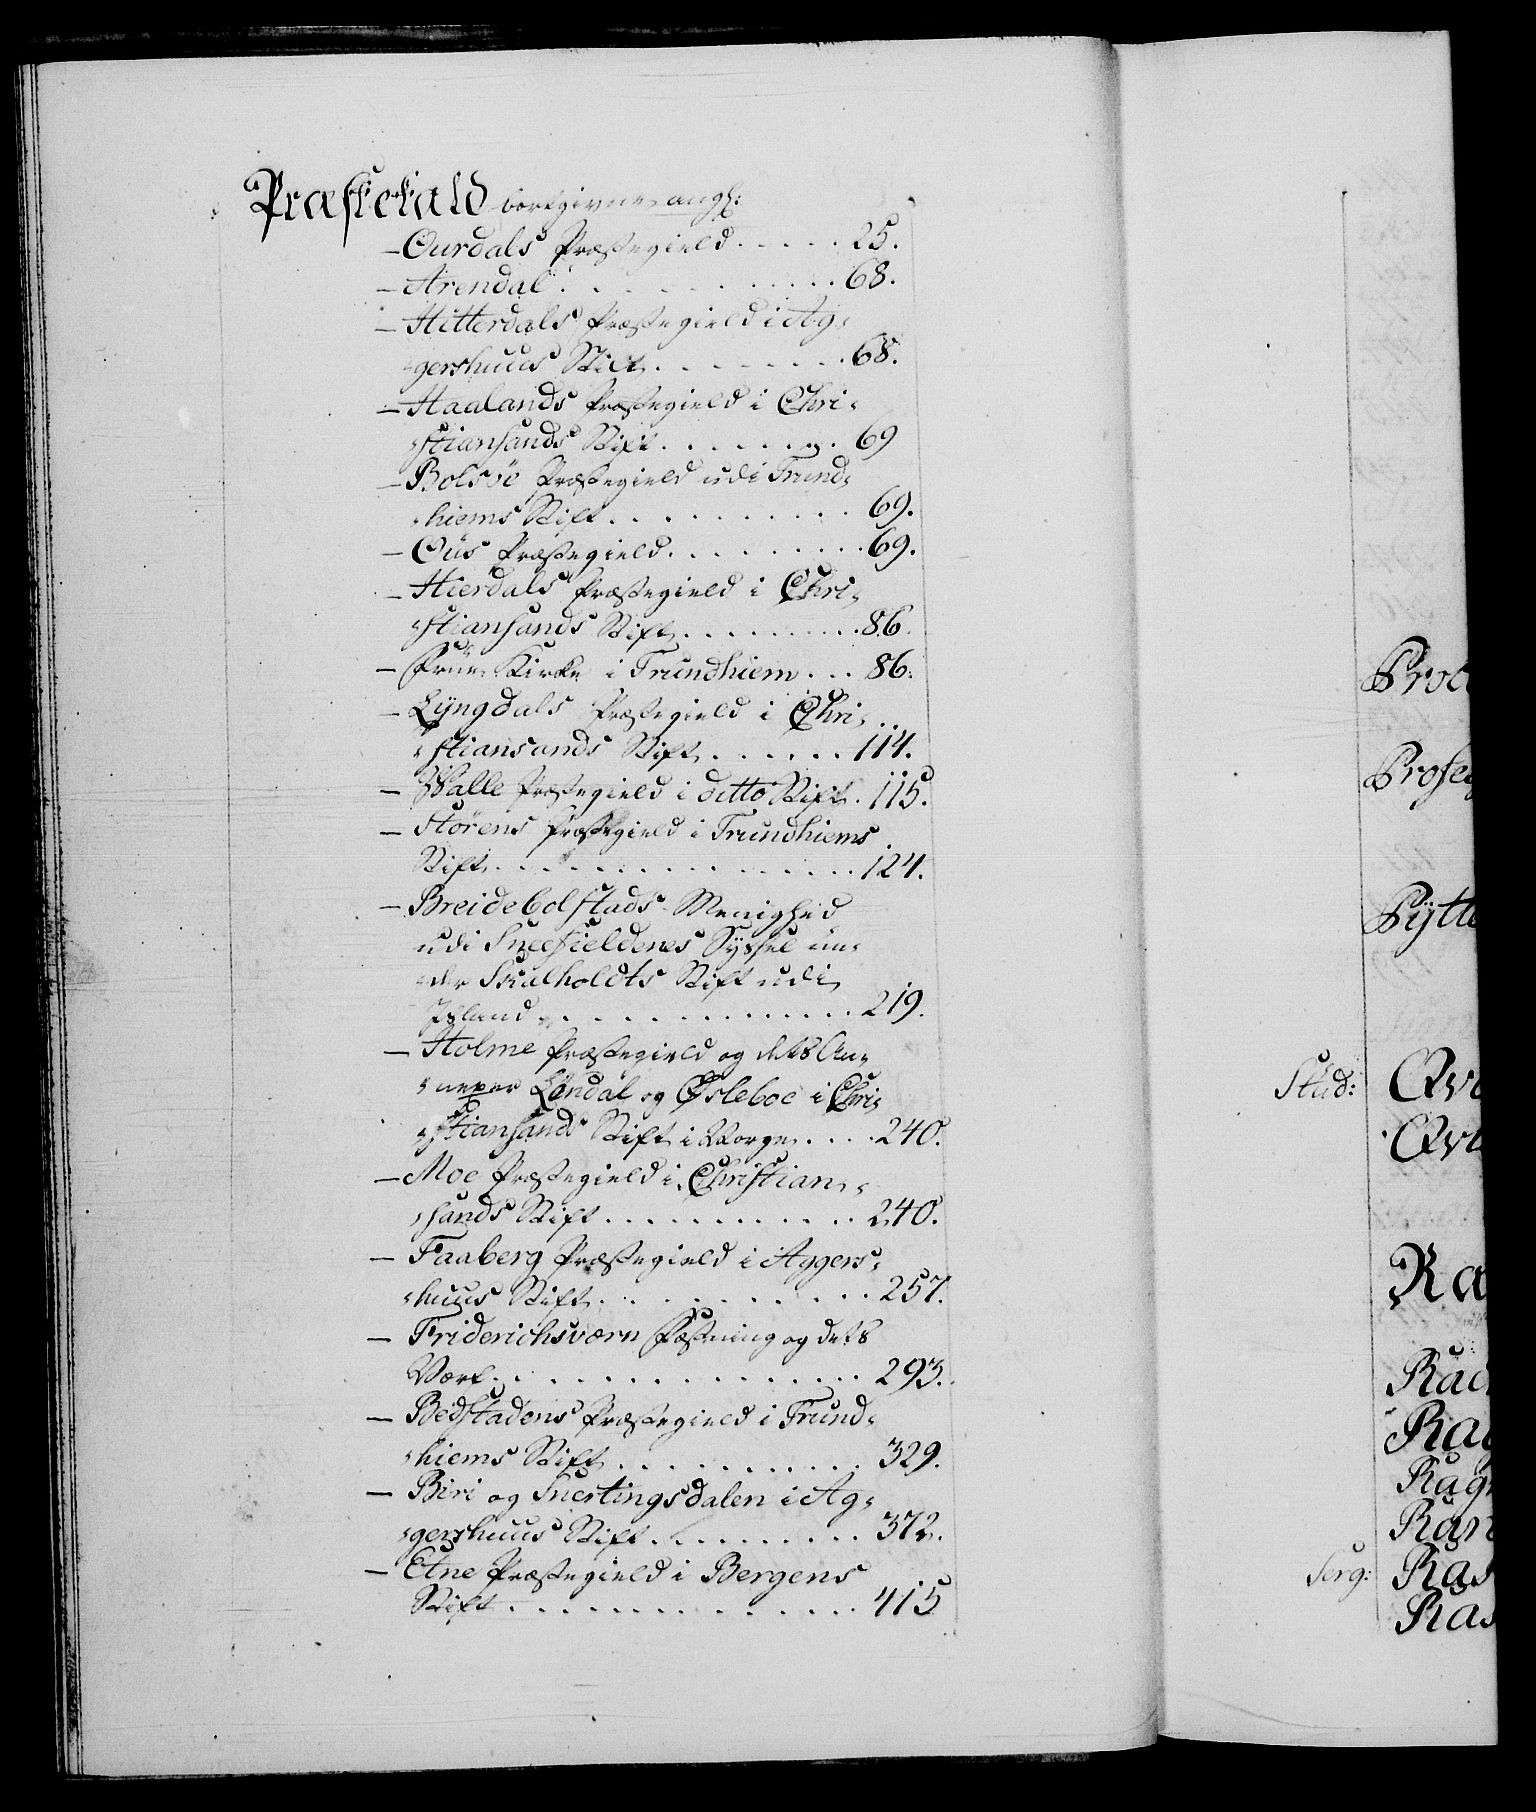 Præstekald bortgivne angl:
— Ourdals Præstegield . . . . . 25.
— Arendal . . . . . . . . . . . 68.
— Hitterdals Præstegield i Ag-
gershuus Stift . . . . . . . 68.
— Haalands Præstegield i Chri-
stiansands Stift . . . . . . . 69
— Bolsöe Præstegield udi Trund-
hiems Stift . . . . . . . . . . 69.
— Ous Præstegield . . . . . . . . 69.
— Hierdals Præstegield i Chri-
stiansands Stift . . . . . . . . . 86.
— Frue Kirke i Trundhiem . . . 86.
— Lyngdals Præstegield i Chri-
stiansands Stift . . . . . . 114.
— Walle Præstegield i ditto Stift . 115.
— Störens Præstegield i Trundhiems
Stift . . . . . . . . . . . . . . . 124.
— Breidebolstads Menighed
udi Sneefieldenes Syssel un-
der Skalholdts Stift udi
Island . . . . . . . . . . . . . 219.
— Holme Præstegield og dets An-
nexer Löndal og Øsleboe i Chri-
stiansands Stift i Norge . . . . 240.
— Moe Præstegield i Christian-
sands Stift . . . . . . . . . . . 240.
— Faaberg Præstegield i Aggers-
huus Stift . . . . . . . . . . . 257.
— Friderichsværn Fæstning og dets
Værk . . . . . . . . . . . . . . 293.
— Bedstadens Præstegield i Trund-
hiems Stift . . . . . . . . . . 329.
— Biri og Snertingsdalen i Ag-
gershuus Stift . . . . . . . . . 372.
— Etne Præstegield i Bergens
Stift . . . . . . . . . . . . . . 415
Stud:
Ra
Serg: Ras
Ras